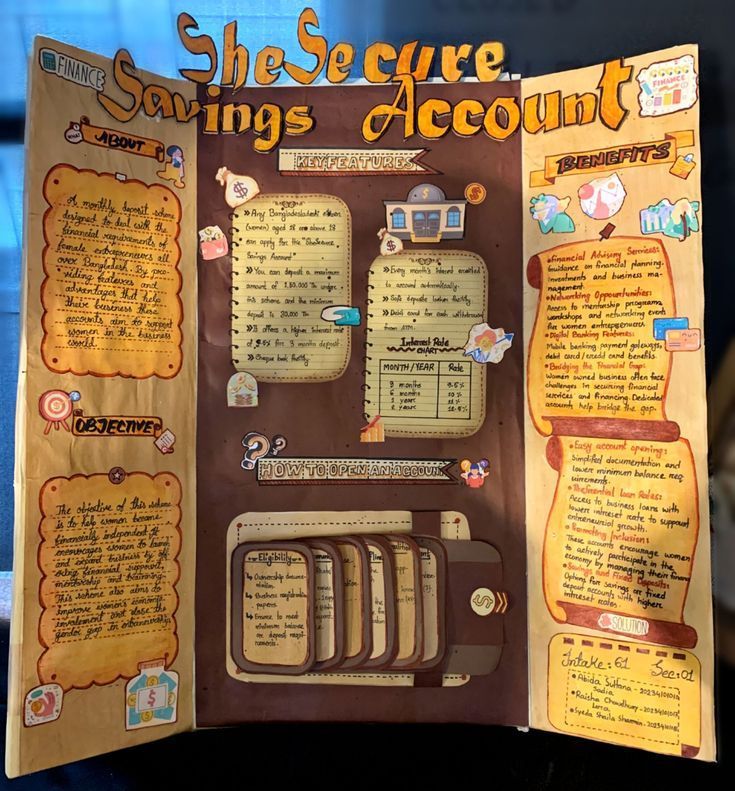 SheSecure
Savings Account
FINANCE
WHAT
ABOUT
A monthly deposit scheme
designed to deal with the
financial requirements of
female entrepreneurs all
over Bangladesh. By pro-
viding features and
advantages that help
their business these
accounts aim to support
women in the business
world.
OBJECTIVE
The objective of this scheme
is to help women become
financially independent. It
encourages women to
and expand business by off
ering financial support,
mentorship and training.
This scheme also aims to
improve women's economic
involvement and close the
gender gap in
KEY FEATURES
» Any Bangladeshi citizen
(women) aged 18 or above 18
can apply for the "SheSecure
Savings Account"
» You can deposit a maximum
amount of 1,50,000 Tk under
this scheme and the minimum
deposit is 20,000 Tk
» It offers a higher interest rate
of 9.5% for 3 month deposit
» Cheque book facility.
» Every month's interest credited
to account automatically.
» Safe deposite locker facility
» Debit card for cash withdrawal
from ATM.
Interest Rate
CHART
MONTH / YEAR Rate
3 months 9.5%
6 months 10%
1 year 11%
2 year 12.5%
HOW TO OPEN AN ACCOUNT
Eligibility
↳ Ownership docume-
ntation.
↳ Business registration
papers.
↳ Ensure to meet
minimum balance
or deposit requi-
rements.
FINANCE
BENEFITS
Financial Advisory Services:
Guidance on financial planning,
investments and business ma-
nagement.
Networking Oppourtunities:
Access to mentorship programs,
workshops and networking events
for women entrepreneurs.
Digital Banking Features:
Mobile banking, payment gateways,
debit card/credit card benefits.
Bridging the Financial Gap:
Women owned business often face
challenges in securing financial
services and financing. Dedicated
accounts help bridge the gap.
Easy account opening:
Simplified documentation and
lower minimum balance req-
uirements.
Preferential Loan Rates:
Access to business loans with
lower intreset rate to support
entreneurial growth.
Promoting Inclusion:
These accounts encourage women
to actively participate in the
economy by managing their finan
Savings and Fixed Deposits:
Options for savings or fixed
deposit accounts with higher
intreset rates.
SOLUTION
Intake: 61 Sec: 01
Abida Sultana - 20234101010
Sadia
Raisha Chowdhury -
Lura
Syeda Shaila Sharmin -